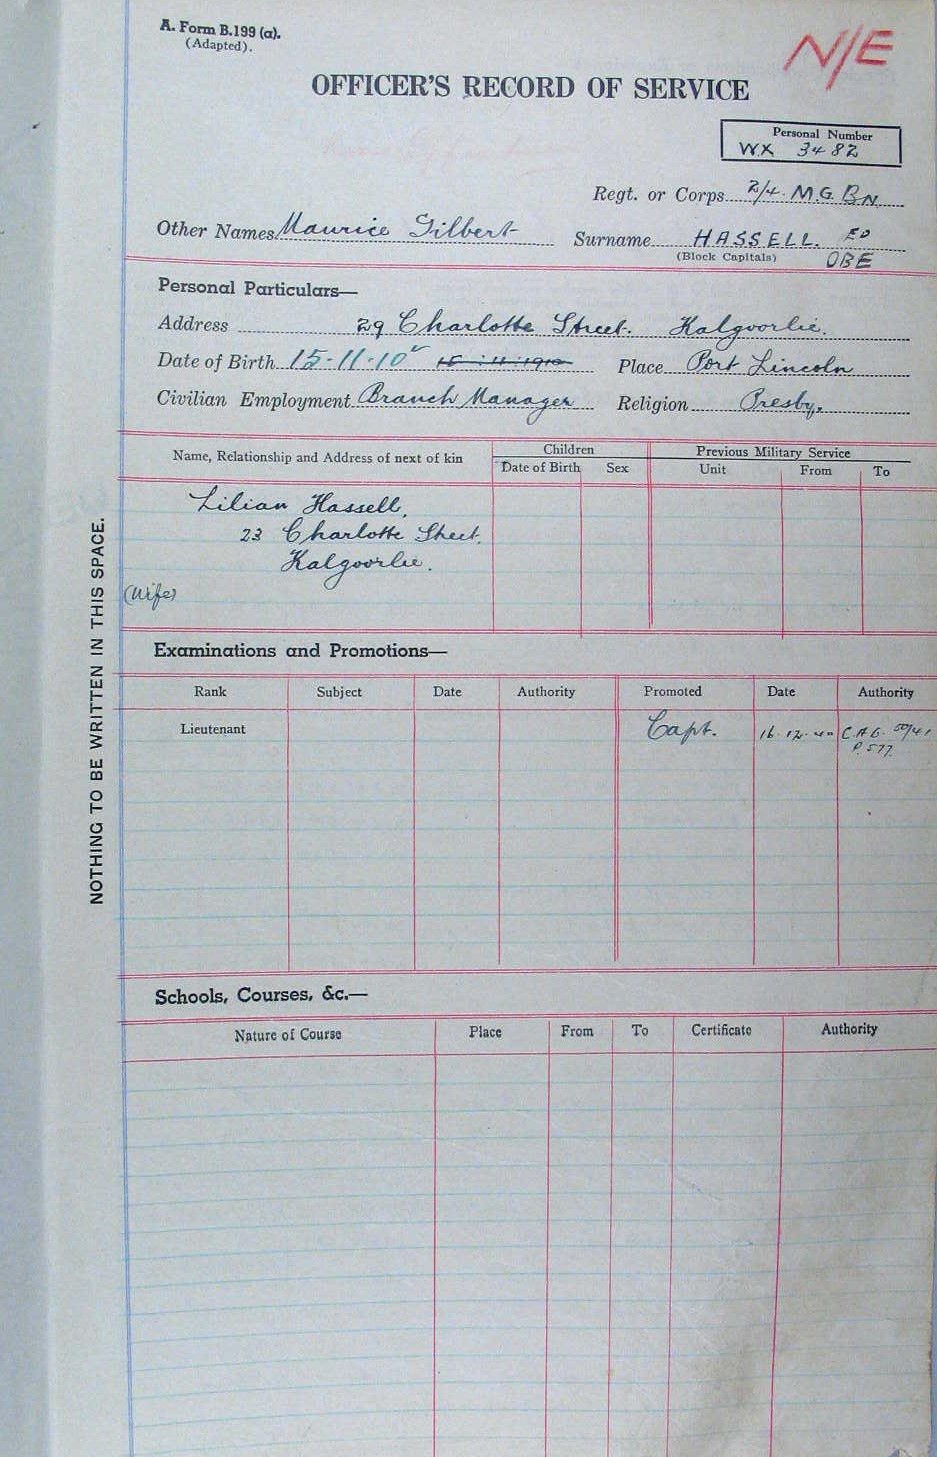 A. Form B.199 (a).
(Adapted).
N/E
OFFICER'S RECORD OF SERVICE
Personal Number
WX 3482
Regt. or Corps 2/4. M.G. BN.
Other Names Maurice Gilbert Surname HASSELL. ED
(Block Capitals) OBE
Personal Particulars—
Address 29 Charlotte Street. Kalgoorlie.
Date of Birth 15-11-10 15.11.1910 Place Port Lincoln
Civilian Employment Branch Manager Religion Presby.
Name, Relationship and Address of next of kin Children Previous Military Service
Date of Birth Sex Unit From To
Lilian Hassell,
23 Charlotte Street.
Kalgoorlie.
(Wife)
Examinations and Promotions—
Rank Subject Date Authority Promoted Date Authority
Lieutenant Capt. 16.12.40 C.A.G. 50/41
P.577
Schools, Courses, &c.—
Nature of Course Place From To Certificate Authority
NOTHING TO BE WRITTEN IN THIS SPACE.